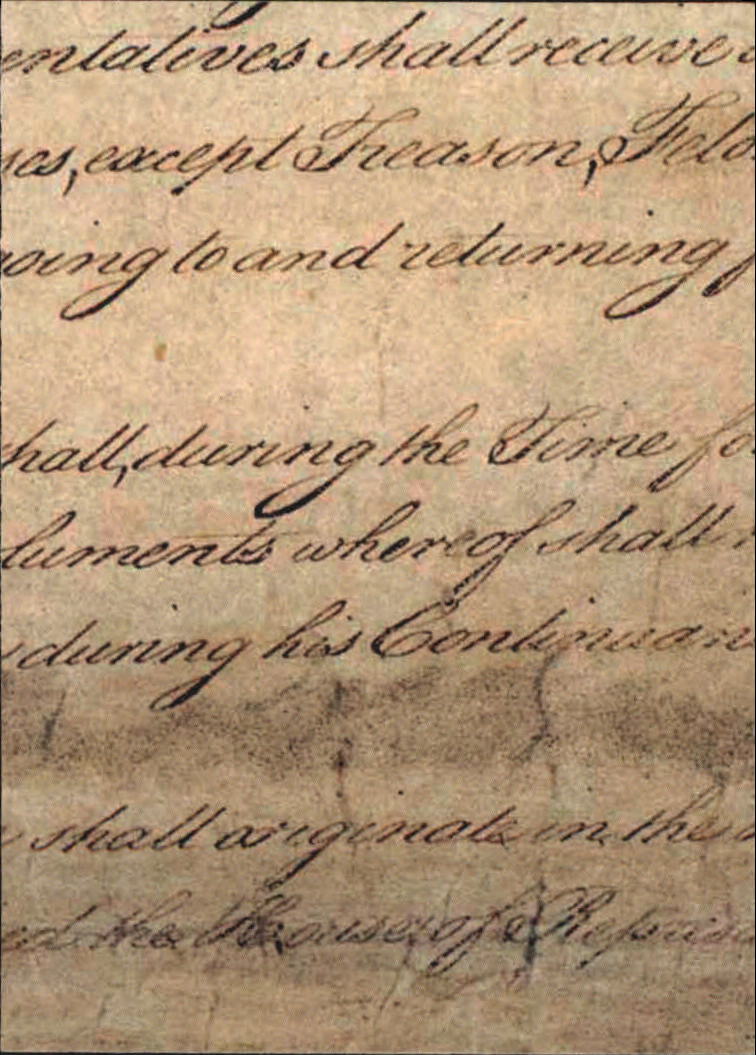 entatives shall receive
ses, except Treason, Felo
going to and returning f
hall, during the Time fo
luments whereof shall
during his Continuan
shall originate in the
ed the House of Repre